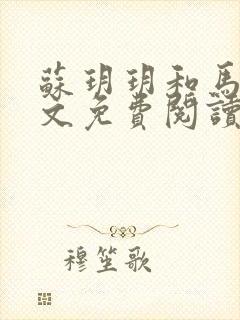 蘇玥玥和馬
文免費閱讀
穆笙歌